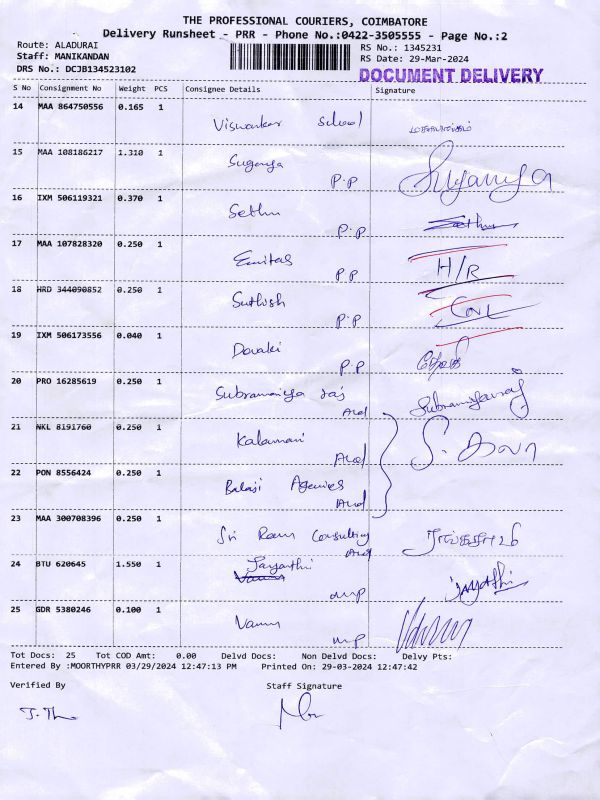 THE PROFESSIONAL COURIERS, COIMBATORE
Delivery Runsheet - PRR - Phone No.:0422-3505555 - Page No.:2
Route: ALADURAI
Staff: MANIKANDAN
DRS No.: DCJB134523102
RS No.: 1345231
RS Date: 29-Mar-2024
DOCUMENT DELIVERY
S No Consignment No Weight PCS Consignee Details Signature
14 MAA 864750556 0.165 1 Viswankar School
15 MAA 108186217 1.310 1 Suganya P.P Suganya
16 IXM 506119321 0.370 1 Sethu P.P Sethu
17 MAA 107828320 0.250 1 P.P H/R
18 HRD 344090852 0.250 1 Suthish P.P
19 IXM 506173556 0.040 1 Devaki P.P தேவகி
20 PRO 16285619 0.250 1 Subramaniya raj Subramiyaraj
21 NKL 8191760 0.250 1 Kalamani
22 PON 8556424 0.250 1 Balaji Agencies
23 MAA 300708396 0.250 1 Sri Ram Consulting
24 BTU 620645 1.550 1 Jayanthi MP Jayathi
25 GDR 5380246 0.100 1 MP
Tot Docs: 25 Tot COD Amt: 0.00 Delvd Docs: Non Delvd Docs: Delvy Pts:
Entered By :MOORTHYPRR 03/29/2024 12:47:13 PM Printed On: 29-03-2024 12:47:42
Verified By Staff Signature